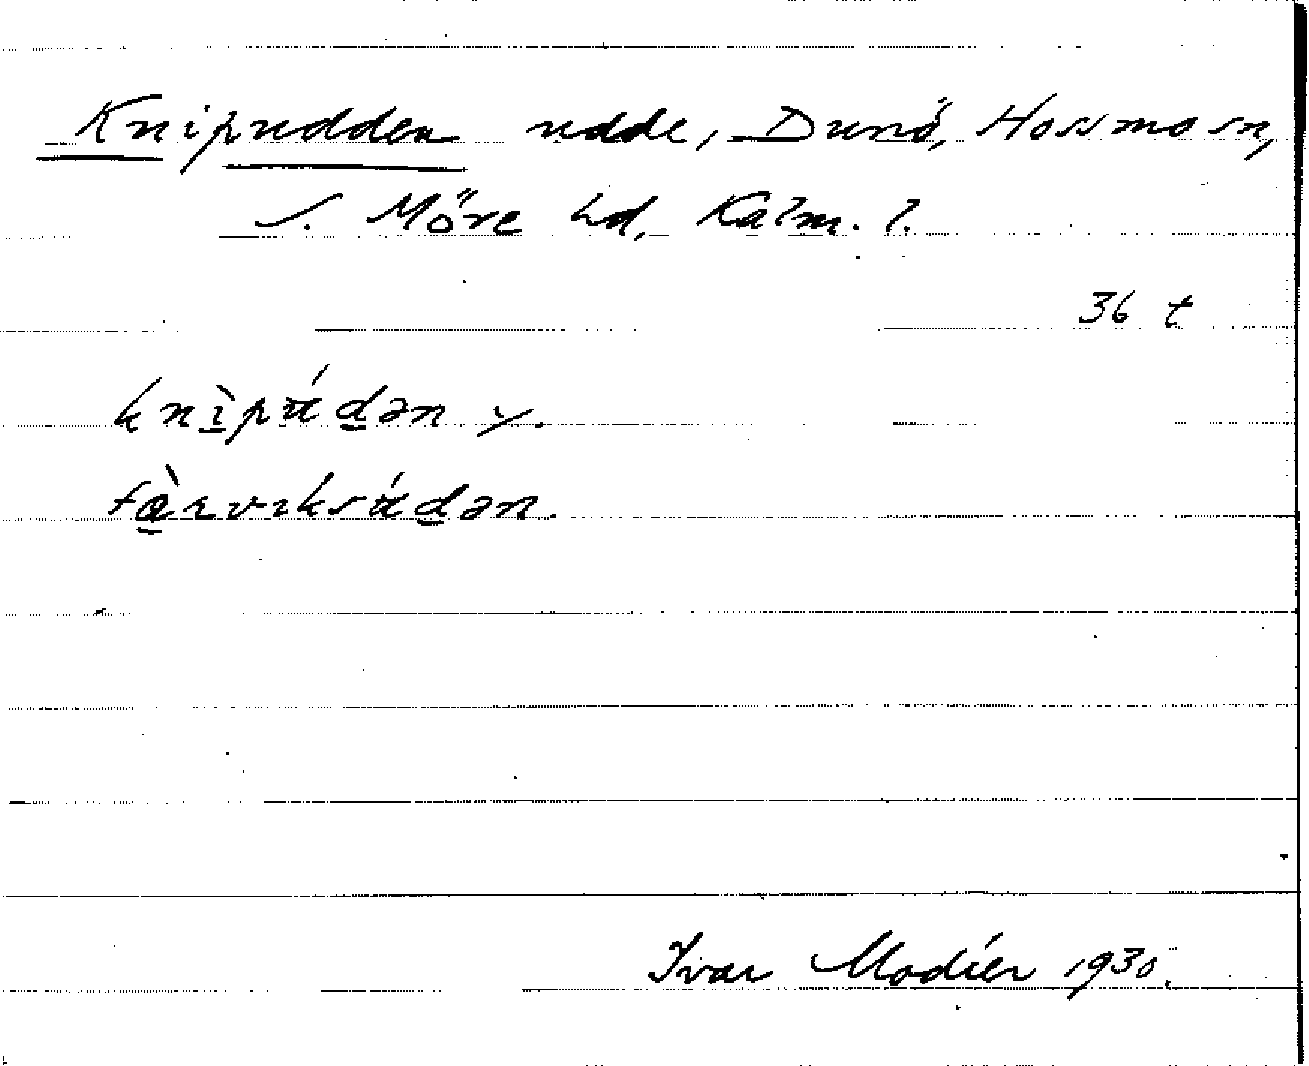 Knipudden udde, Dunö, Hossmo sn,
S. Möre hd, Kalm. l.
36 t
knì̱púd̲ən
fà̱rviksúd̲ən.
Ivar Modéer 1930.